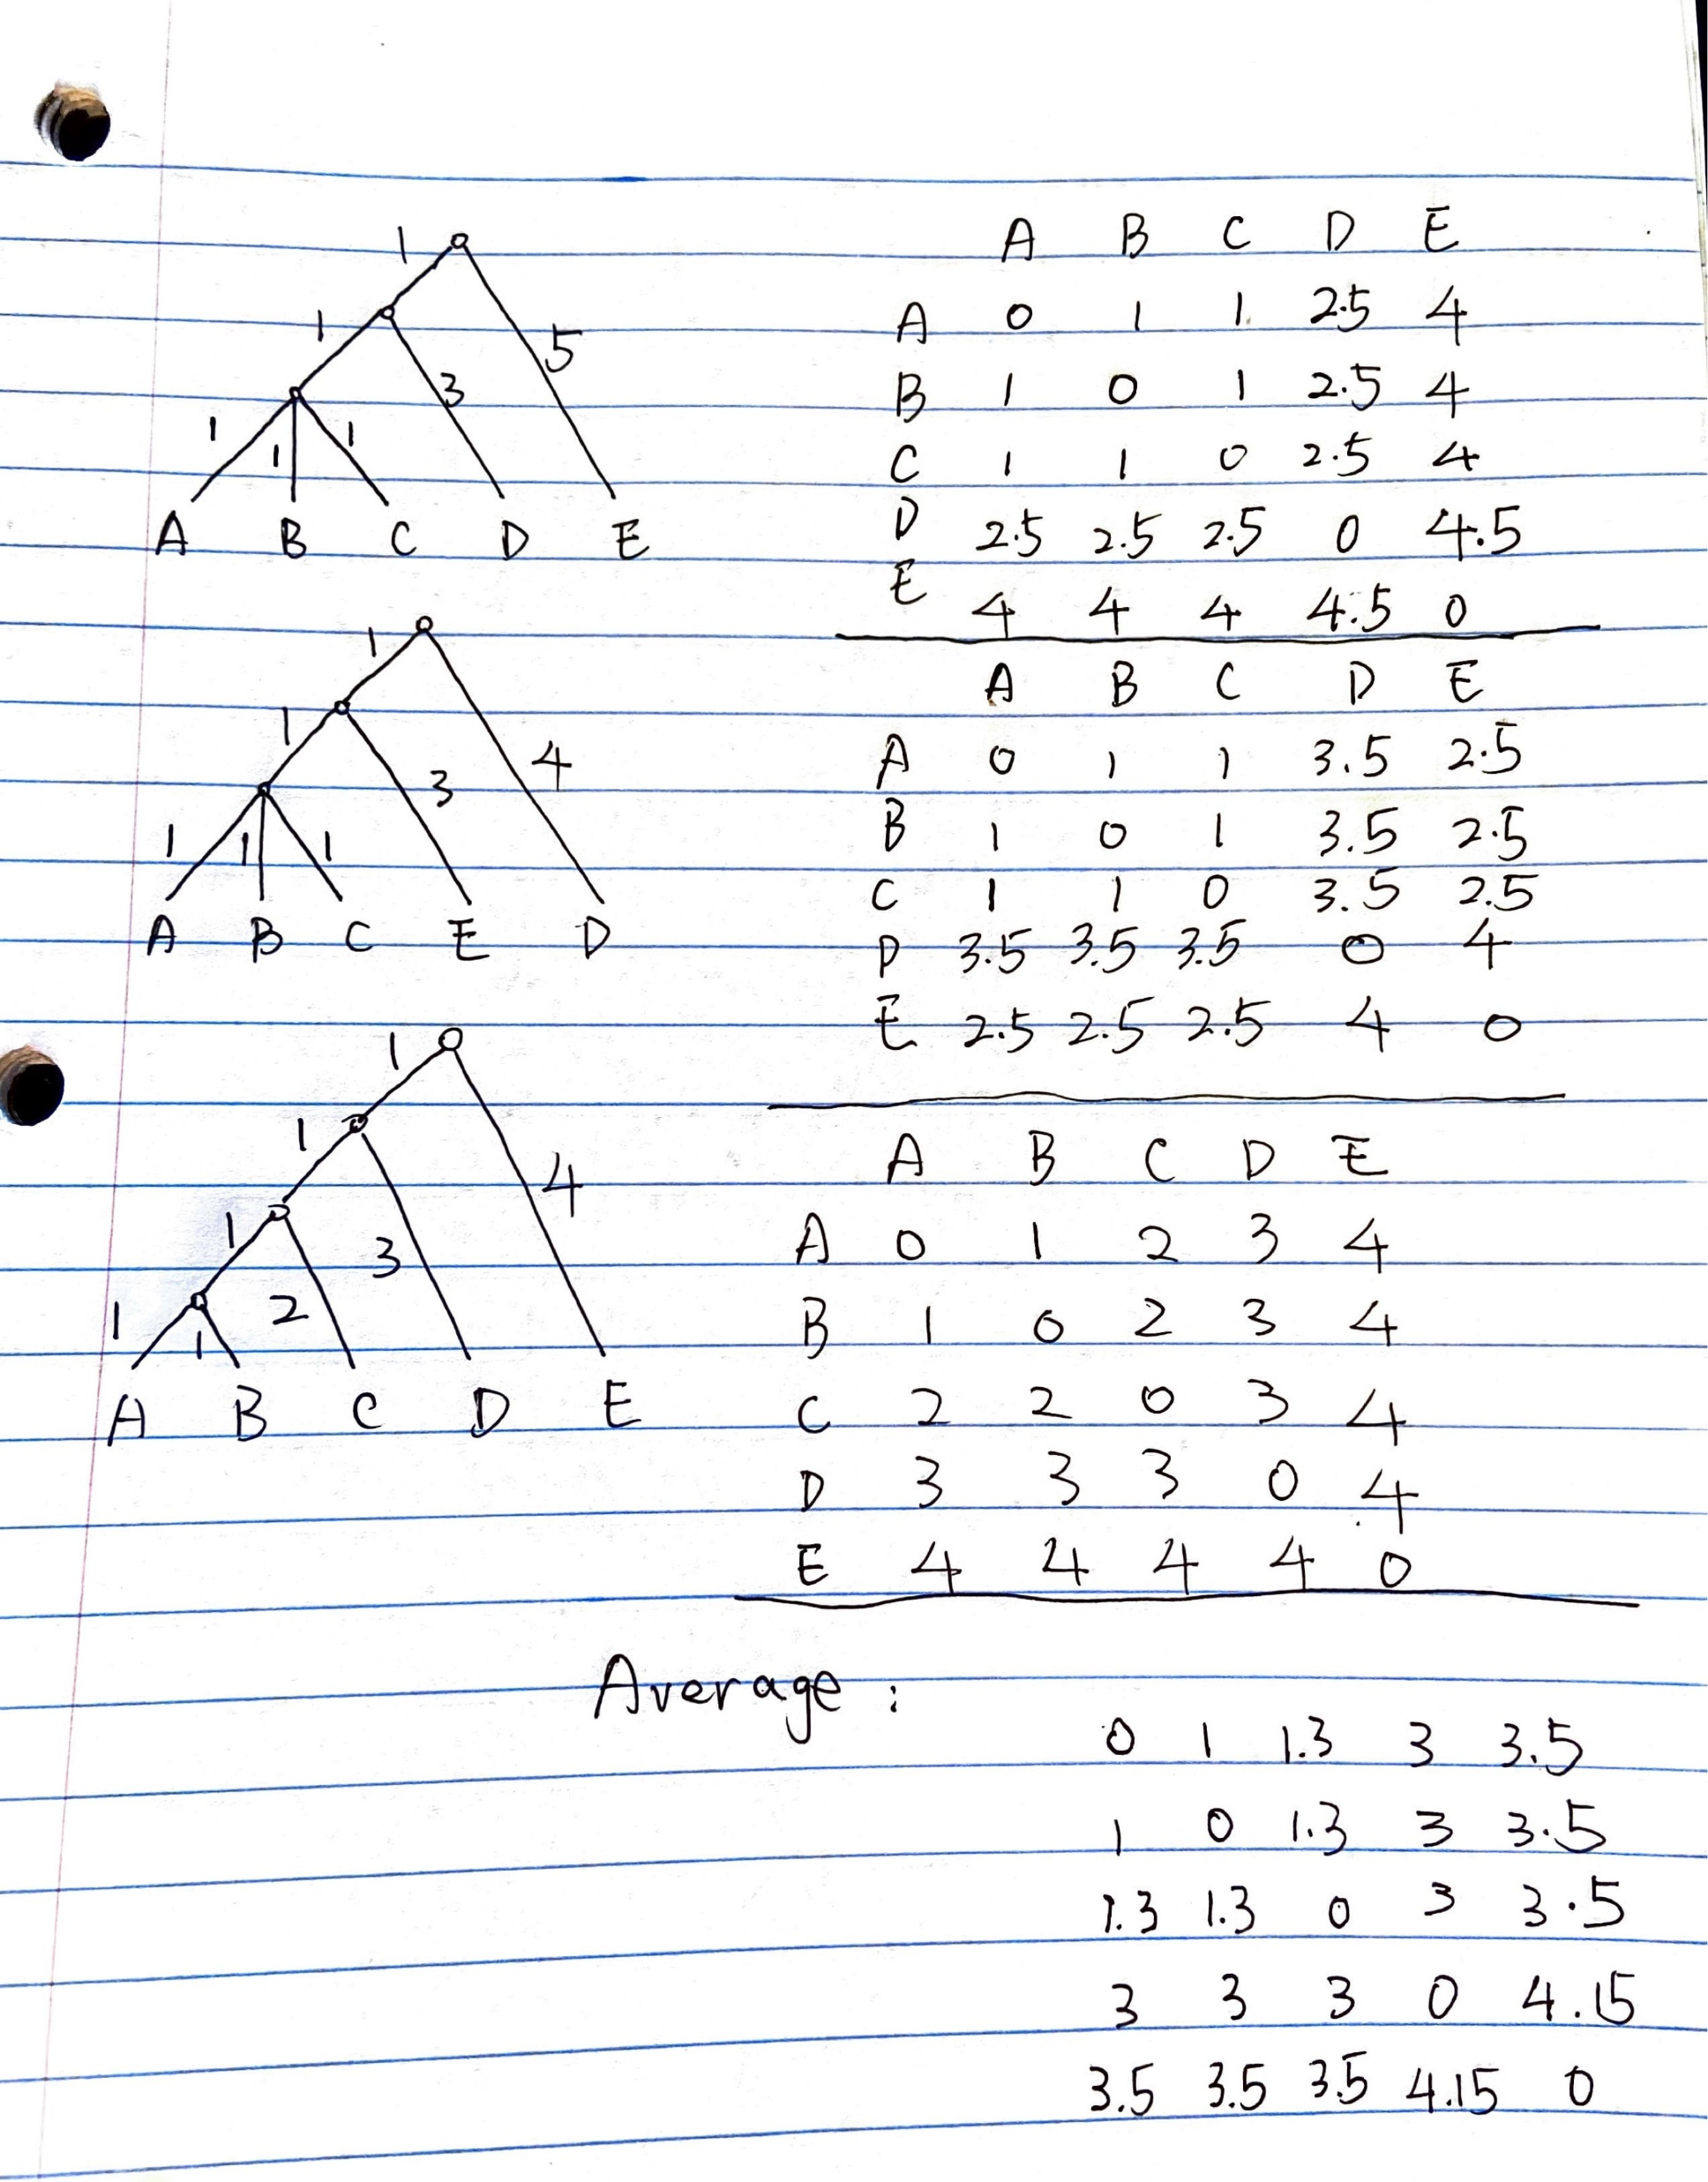 1
1
5
3
1 1 1
A B C D E
A B C D E
A 0 1 1 2.5 4
B 1 0 1 2.5 4
C 1 1 0 2.5 4
D 2.5 2.5 2.5 0 4.5
E 4 4 4 4.5 0
1
1
4
3
1 1 1
A B C E D
A B C D E
A 0 1 1 3.5 2.5
B 1 0 1 3.5 2.5
C 1 1 0 3.5 2.5
D 3.5 3.5 3.5 0 4
E 2.5 2.5 2.5 4 0
1
1
4
1 3
1 1 2
A B C D E
A B C D E
A 0 1 2 3 4
B 1 0 2 3 4
C 2 2 0 3 4
D 3 3 3 0 4
E 4 4 4 4 0
Average :
0 1 1.3 3 3.5
1 0 1.3 3 3.5
1.3 1.3 0 3 3.5
3 3 3 0 4.15
3.5 3.5 3.5 4.15 0